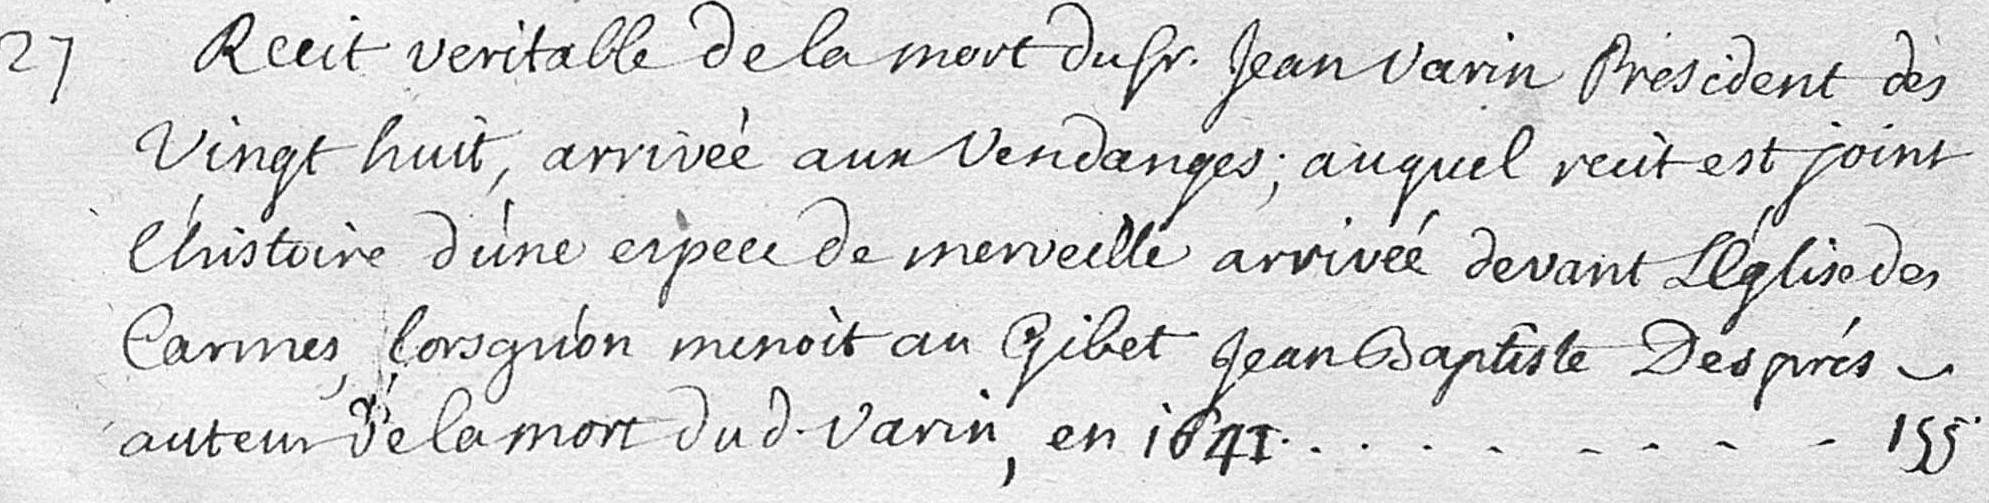 27 Recit veritable de la mort du sr. Jean Varin Président dès
Vingt huit, arrivéé aux Vendanges; auquel recit est joint
l'histoire d'une espece de merveille arrivéé devant L'Église des
Carmes, lorsqu'on menoit au Gibet Jean Baptiste Després
auteur de la mort du d. Varin, en 1641. . . . - - - - - 155